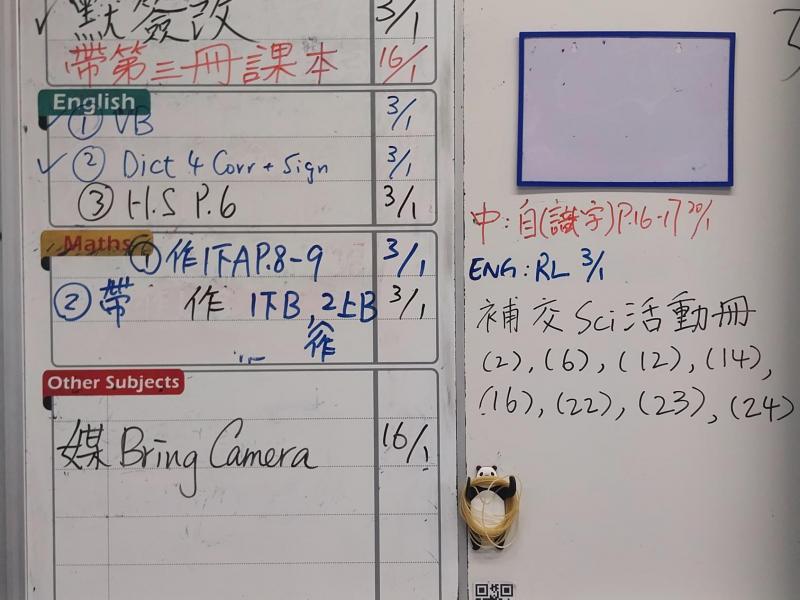 默簽改 3/1
帶第三冊課本 16/1
English
① VB 3/1
② Dict 4 Corr + Sign 3/1
③ H.S P.6 3/1
Maths
① 作1下A P.8-9 3/1
② 帶 作 1下B, 2上B 3/1
作
Other Subjects
媒 Bring Camera 16/1
中: 自(識字) P.16-17 20/1
ENG: RL 3/1
補交 Sci 活動冊
(2), (6), (12), (14),
(16), (22), (23), (24)